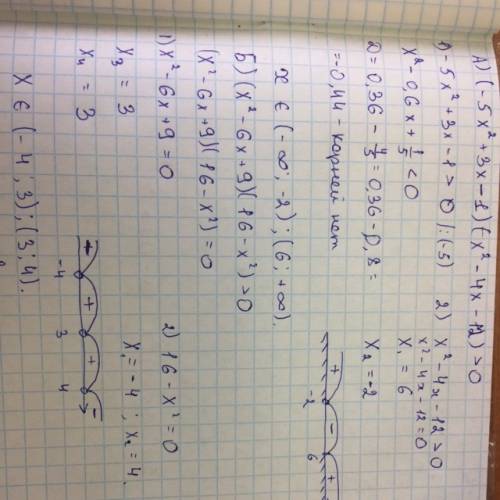 А) (-5x²+3x-1)(x²-4x-12)>0
1) -5x²+3x-1>0 |:(-5)
x²-0,6x+1/5<0
D=0,36-4/5=0,36-0,8=
=-0,44-корней нет
2) x²-4x-12>0
x²-4x-12=0
x₁=6
x₂=-2
+ -2 - 6 +
x ∈ (-∞;-2);(6;+∞).
Б) (x²-6x+9)(16-x²)>0
(x²-6x+9)(16-x²)=0
1) x²-6x+9=0
x₃=3
x₄=3
2) 16-x²=0
x₁=-4; x₂=4.
- -4 + 3 + 4 -
x ∈ (-4;3);(3;4).